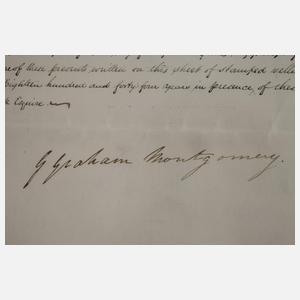 one of these presents written on this sheet of stamped vellu
Eighteen hundred and forty four years in presence of thes
Esquire
G Graham Montgomery.